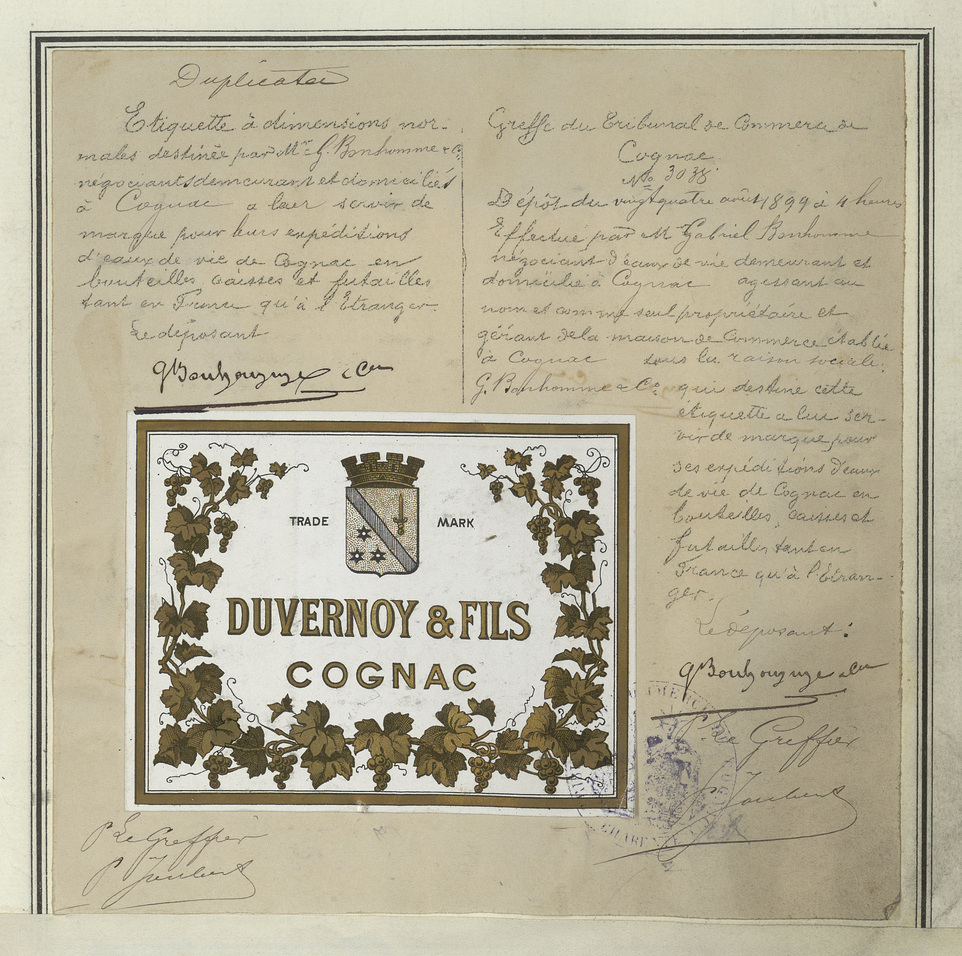 Duplicata
Etiquette à dimensions nor-
males destinée par Mr G. Bonhomme & Cie
négociants demeurant et domiciliés
à Cognac a leur servir de
marque pour leurs expéditions
d'eaux de vie de Cognac en
bouteilles caisses et futailles
tant en France qu'à l'Etranger.
Le déposant
G Bonhomme & Cie
Greffe du Tribunal de Commerce de
Cognac
No 3038
Dépôt du vingt quatre août 1899 à 4 heures
Effectué par M Gabriel Bonhomme
négociant d'eaux de vie demeurant et
domicilié à Cognac agissant au
nom et comme seul propriétaire et
gérant de la maison de Commerce établie
à Cognac sous la raison sociale:
G. Bonhomme & Cie qui destine cette
étiquette a lui ser-
vir de marque pour
ses expéditions d'eaux
de vie de Cognac en
bouteilles, caisses et
futailles tant en
France qu'à l'Etran-
ger.
Le déposant:
G Bonhomme & Cie
P Le Greffier
P Joubert
TRADE MARK
DUVERNOY & FILS
COGNAC
P Le Greffier
P Joubert